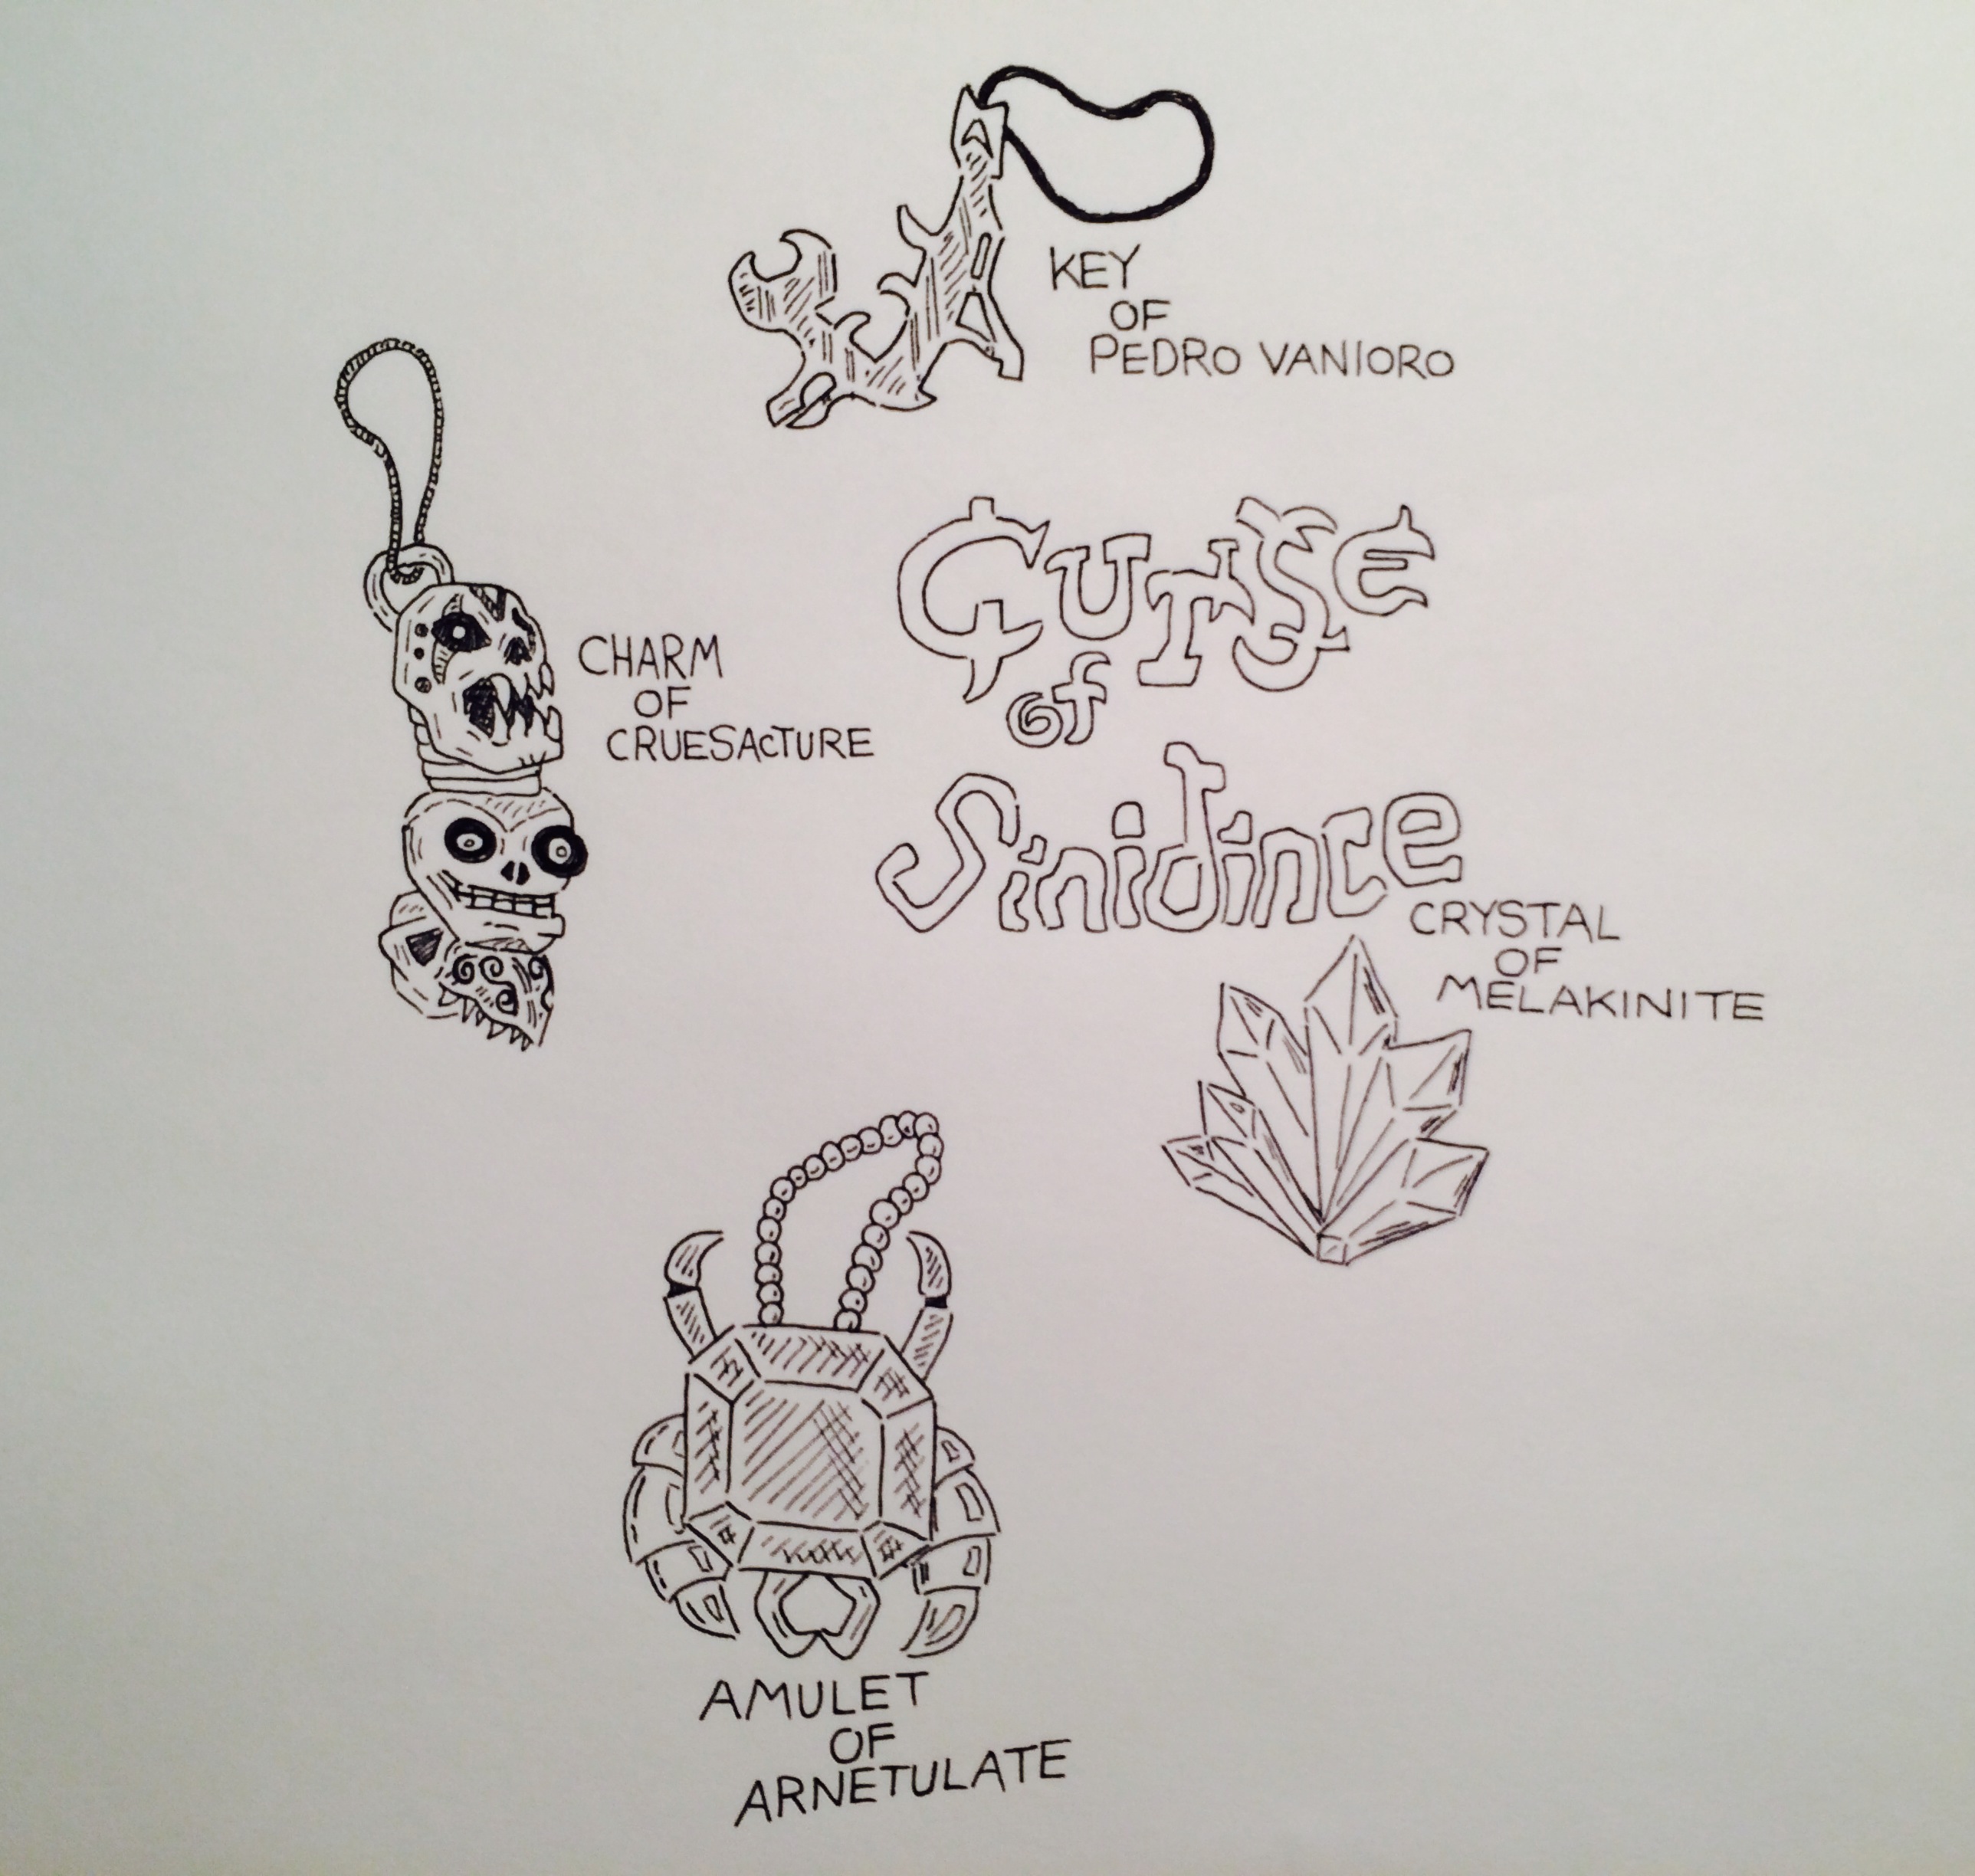 KEY
OF
PEDRO VANIORO
CHARM
OF
CRUESACTURE
Curse
of
Sinidince
CRYSTAL
OF
MELAKINITE
AMULET
OF
ARNETULATE